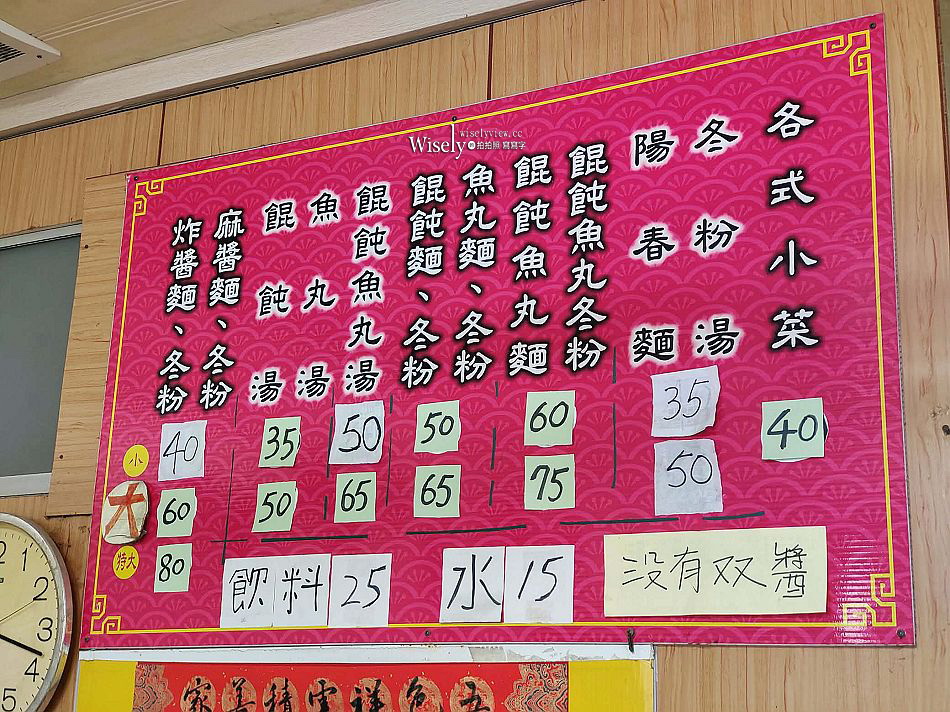 wiselyview.cc
Wisely 拍拍照 寫寫字
各式小菜
冬粉湯
陽春麵
餛飩魚丸冬粉
餛飩魚丸麵
魚丸麵、冬粉
餛飩麵、冬粉
餛飩魚丸湯
魚丸湯
餛飩湯
麻醬麵、冬粉
炸醬麵、冬粉
小 40 35 50 50 60 35 40
大 60 50 65 65 75 50
特大 80
飲料 25 水 15 没有双醬
2
3
4
5